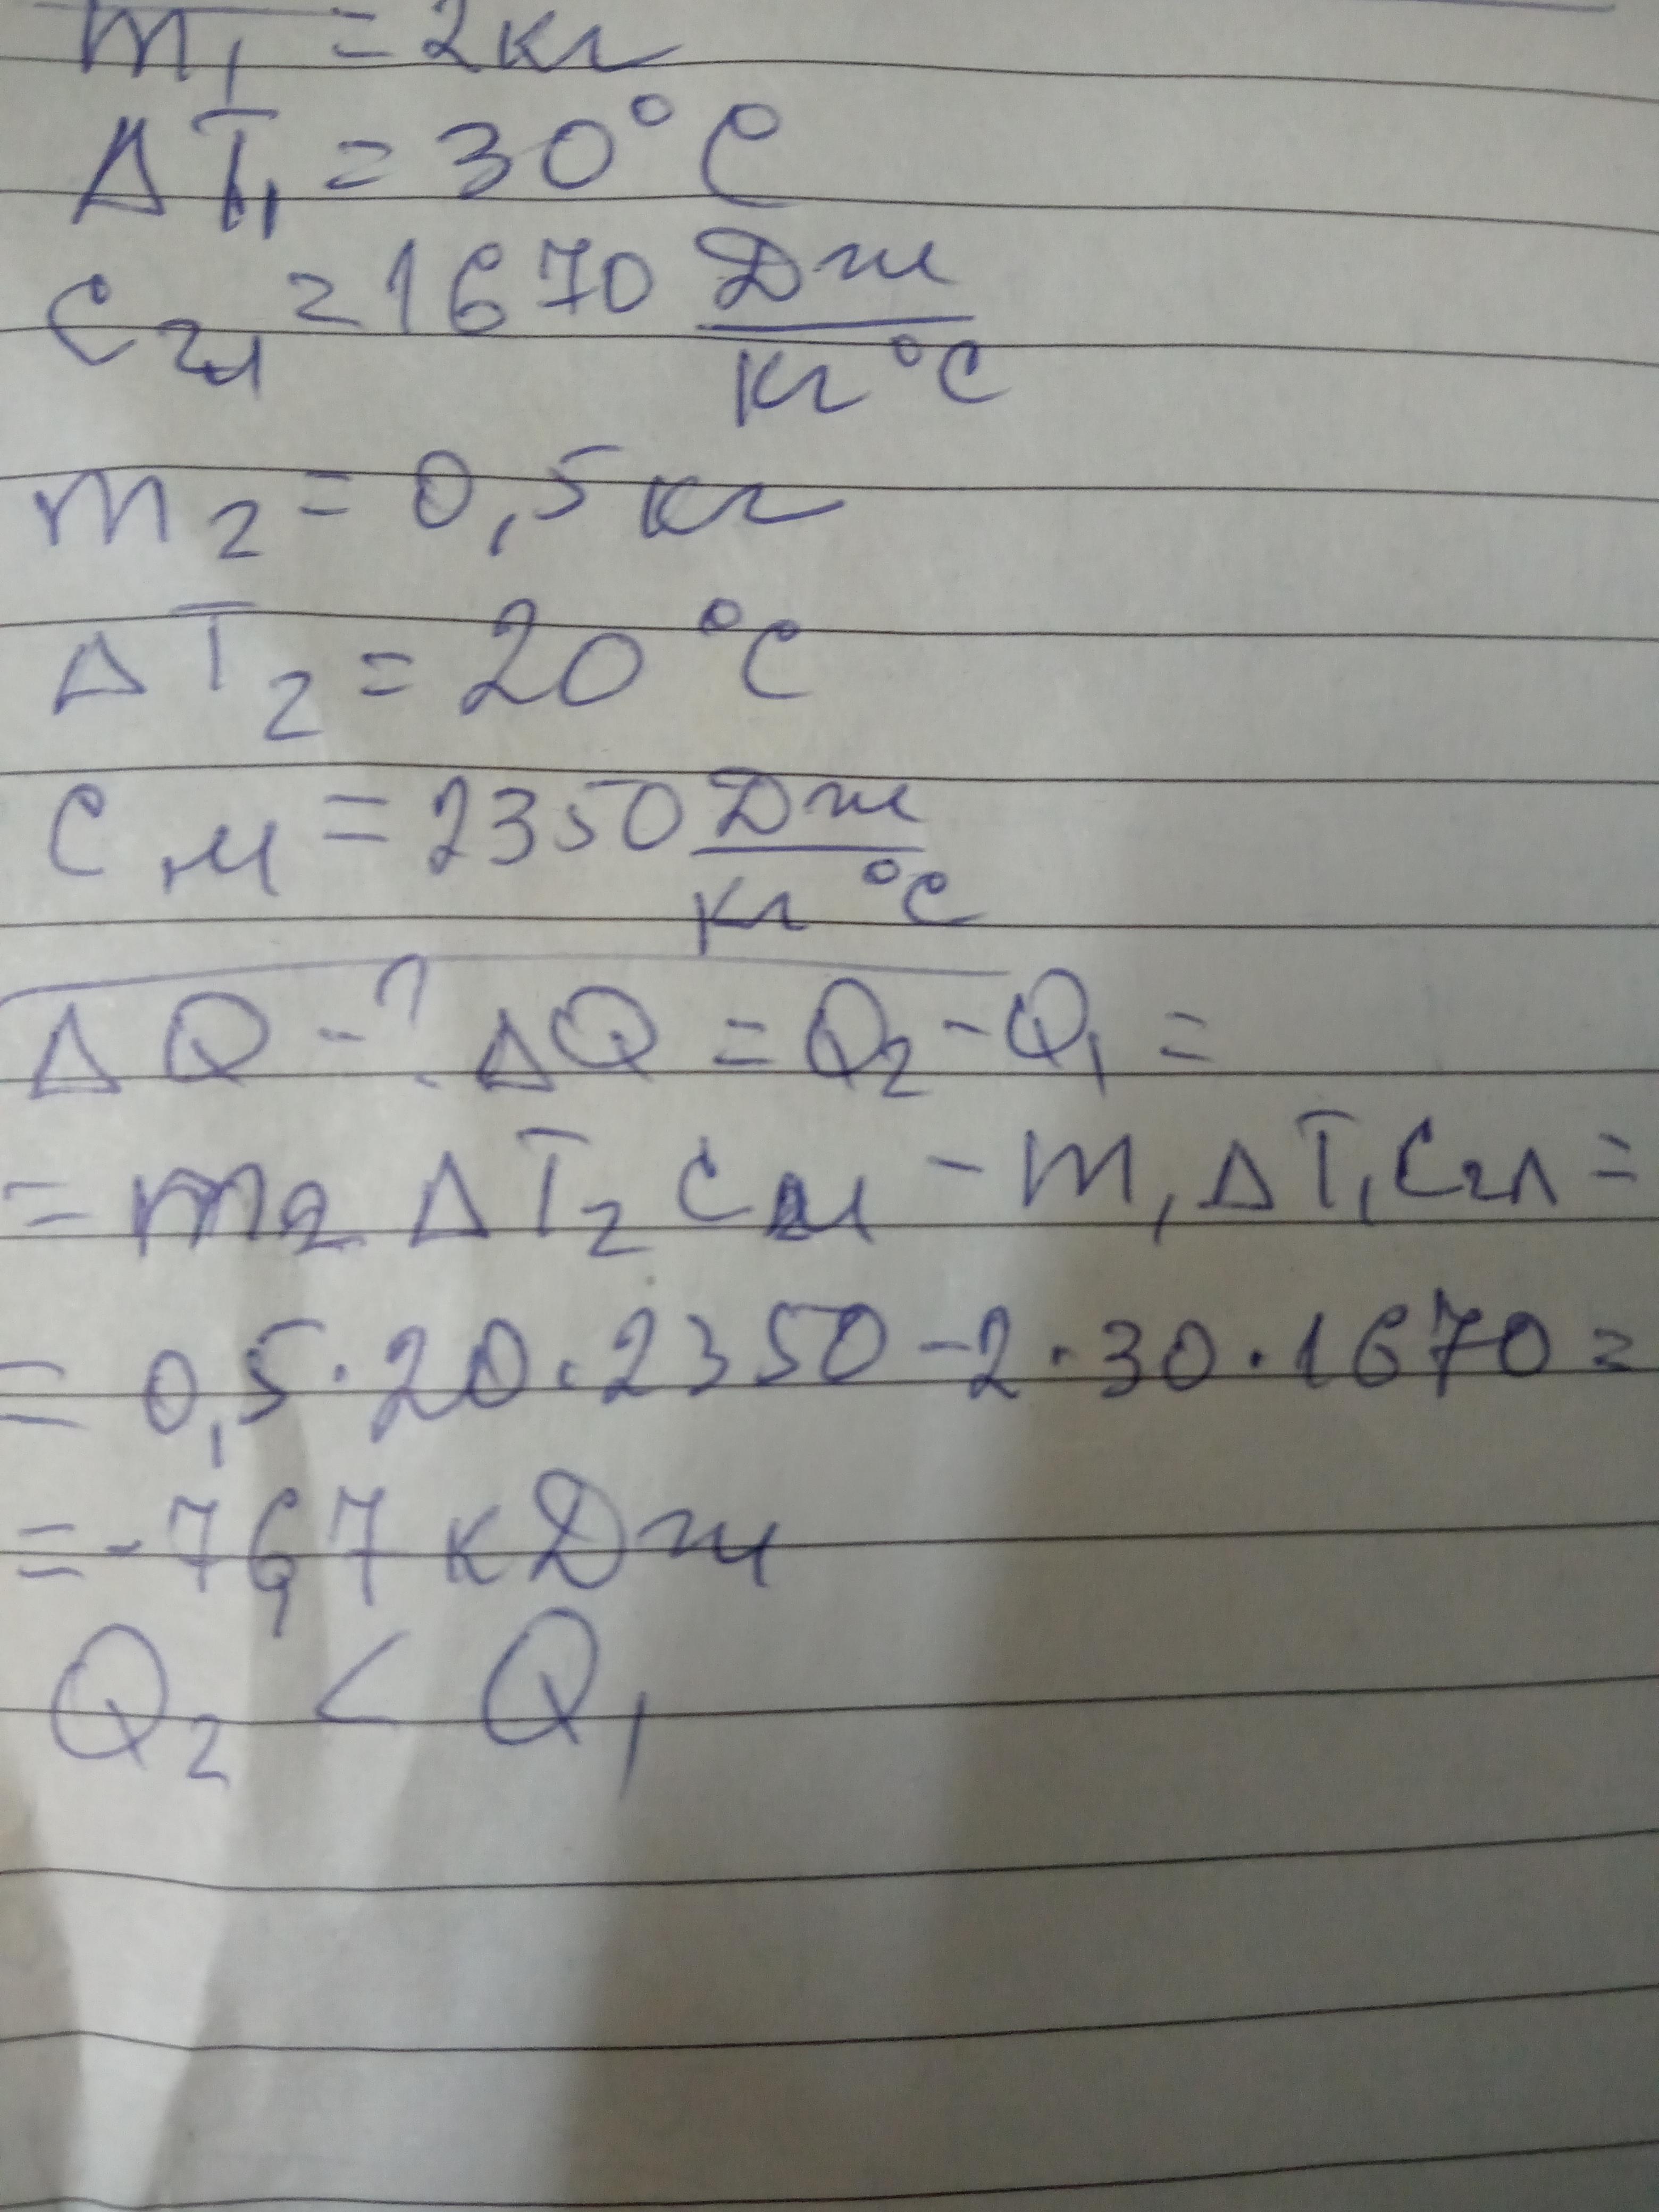 m₁ = 2 кг
ΔT₁ = 30°C
Cгл = 1670 Дж/кг°C
m₂ = 0,5 кг
ΔT₂ = 20°C
Cм = 2350 Дж/кг°C
ΔQ - ? ΔQ = Q₂ - Q₁ =
= m₂ ΔT₂ Cм - m₁ ΔT₁ Cгл =
= 0,5 · 20 · 2350 - 2 · 30 · 1670 =
= -76,7 кДж
Q₂ < Q₁